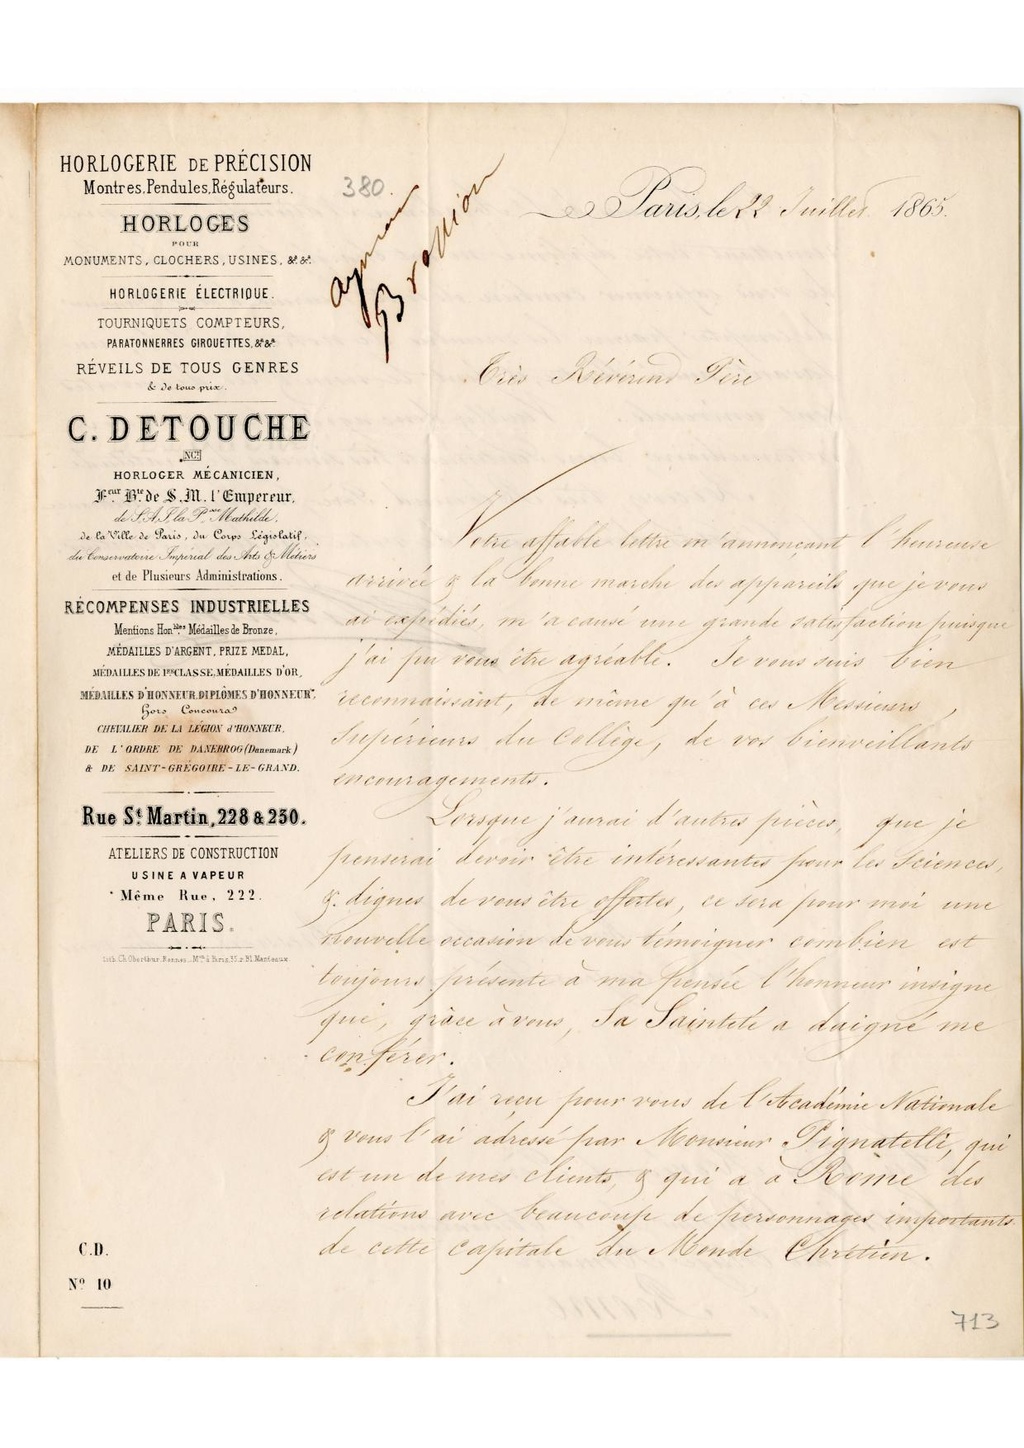 HORLOGERIE DE PRÉCISION
Montres, Pendules, Régulateurs.
HORLOGES
POUR
MONUMENTS, CLOCHERS, USINES, &ª. &ª.
HORLOGERIE ÉLECTRIQUE.
TOURNIQUETS COMPTEURS,
PARATONNERRES GIROUETTES, &ª &ª
RÉVEILS DE TOUS GENRES
& de tous prix.
C. DETOUCHE
NCE
HORLOGER MÉCANICIEN,
Feur Bté de S. M. l'Empereur,
de S. A. I. la Psse Mathilde,
de la Ville de Paris, du Corps Législatif,
du Conservatoire Impérial des Arts & Métiers
et de Plusieurs Administrations.
RÉCOMPENSES INDUSTRIELLES
Mentions Honbles Médailles de Bronze,
MÉDAILLES D'ARGENT, PRIZE MEDAL,
MÉDAILLES DE 1re CLASSE, MÉDAILLES D'OR,
MÉDAILLES D'HONNEUR, DIPLÔMES D'HONNEUR,
Hors Concours
CHEVALIER DE LA LÉGION d'HONNEUR,
DE L'ORDRE DE DANEBROG (Danemark)
& DE SAINT-GRÉGOIRE-LE-GRAND.
Rue St Martin, 228 & 230.
ATELIERS DE CONSTRUCTION
USINE A VAPEUR
Même Rue, 222.
PARIS.
Lith. Ch. Oberthur, Rennes, Mon à Paris, 35, r. Bs Manteaux.
C.D.
No 10
380.
Paris, le 22 Juillet 1865.
Très Révérend Père
Votre affable lettre m'annonçant l'heureuse
arrivée & la bonne marche des appareils que je vous
ai expédiés, m'a causé une grande satisfaction puisque
j'ai pu vous être agréable. Je vous suis bien
reconnaissant, de même qu'à ces Messieurs
Supérieurs du Collège, de vos bienveillants
encouragements.
Lorsque j'aurai d'autres pièces, que je
penserai devoir être intéressantes pour les Sciences,
& dignes de vous être offertes, ce sera pour moi une
nouvelle occasion de vous témoigner combien est
toujours présente à ma pensée l'honneur insigne
que, grâce à vous, Sa Sainteté a daigné me
conférer.
J'ai reçu pour vous de l'Académie Nationale
& vous l'ai adressé par Monsieur Pignatelli, qui
est un de mes clients, & qui a à Rome des
relations avec beaucoup de personnages importants
de cette capitale du Monde Chrétien.
713